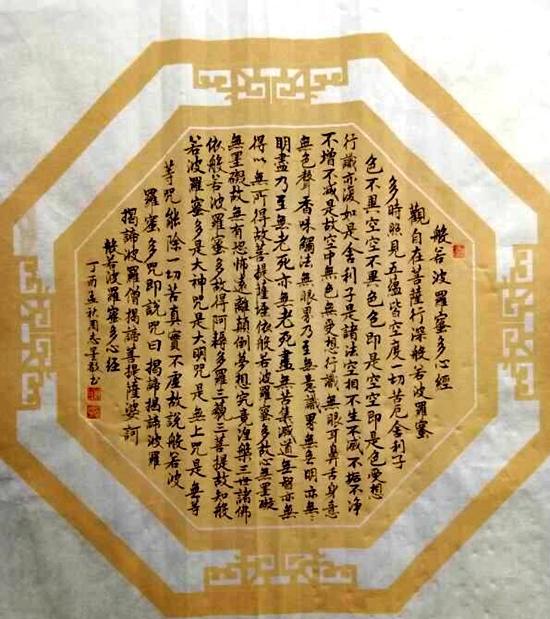 般若波羅蜜多心經
觀自在菩薩行深般若波羅蜜
多時照見五蘊皆空度一切苦厄舍利子
色不異空空不異色色即是空空即是色受想
行識亦復如是舍利子是諸法空相不生不滅不垢不净
不增不減是故空中無色無受想行識無眼耳鼻舌身意
無色聲香味觸法無眼界乃至無意識界無無明亦無無
明盡乃至無老死亦無老死盡無苦集滅道無智亦無
得以無所得故菩提薩埵依般若波羅蜜多故心無罣礙
無罣礙故無有恐怖遠離顛倒夢想究竟涅槃三世諸佛
依般若波羅蜜多故得阿耨多羅三藐三菩提故知般
若波羅蜜多是大神咒是大明咒是無上咒是無等
等咒能除一切苦真實不虛故說般若波
羅蜜多咒即說咒曰揭諦揭諦波羅
揭諦波羅僧揭諦菩提薩婆訶
般若波羅蜜多心經
丁酉孟秋周志